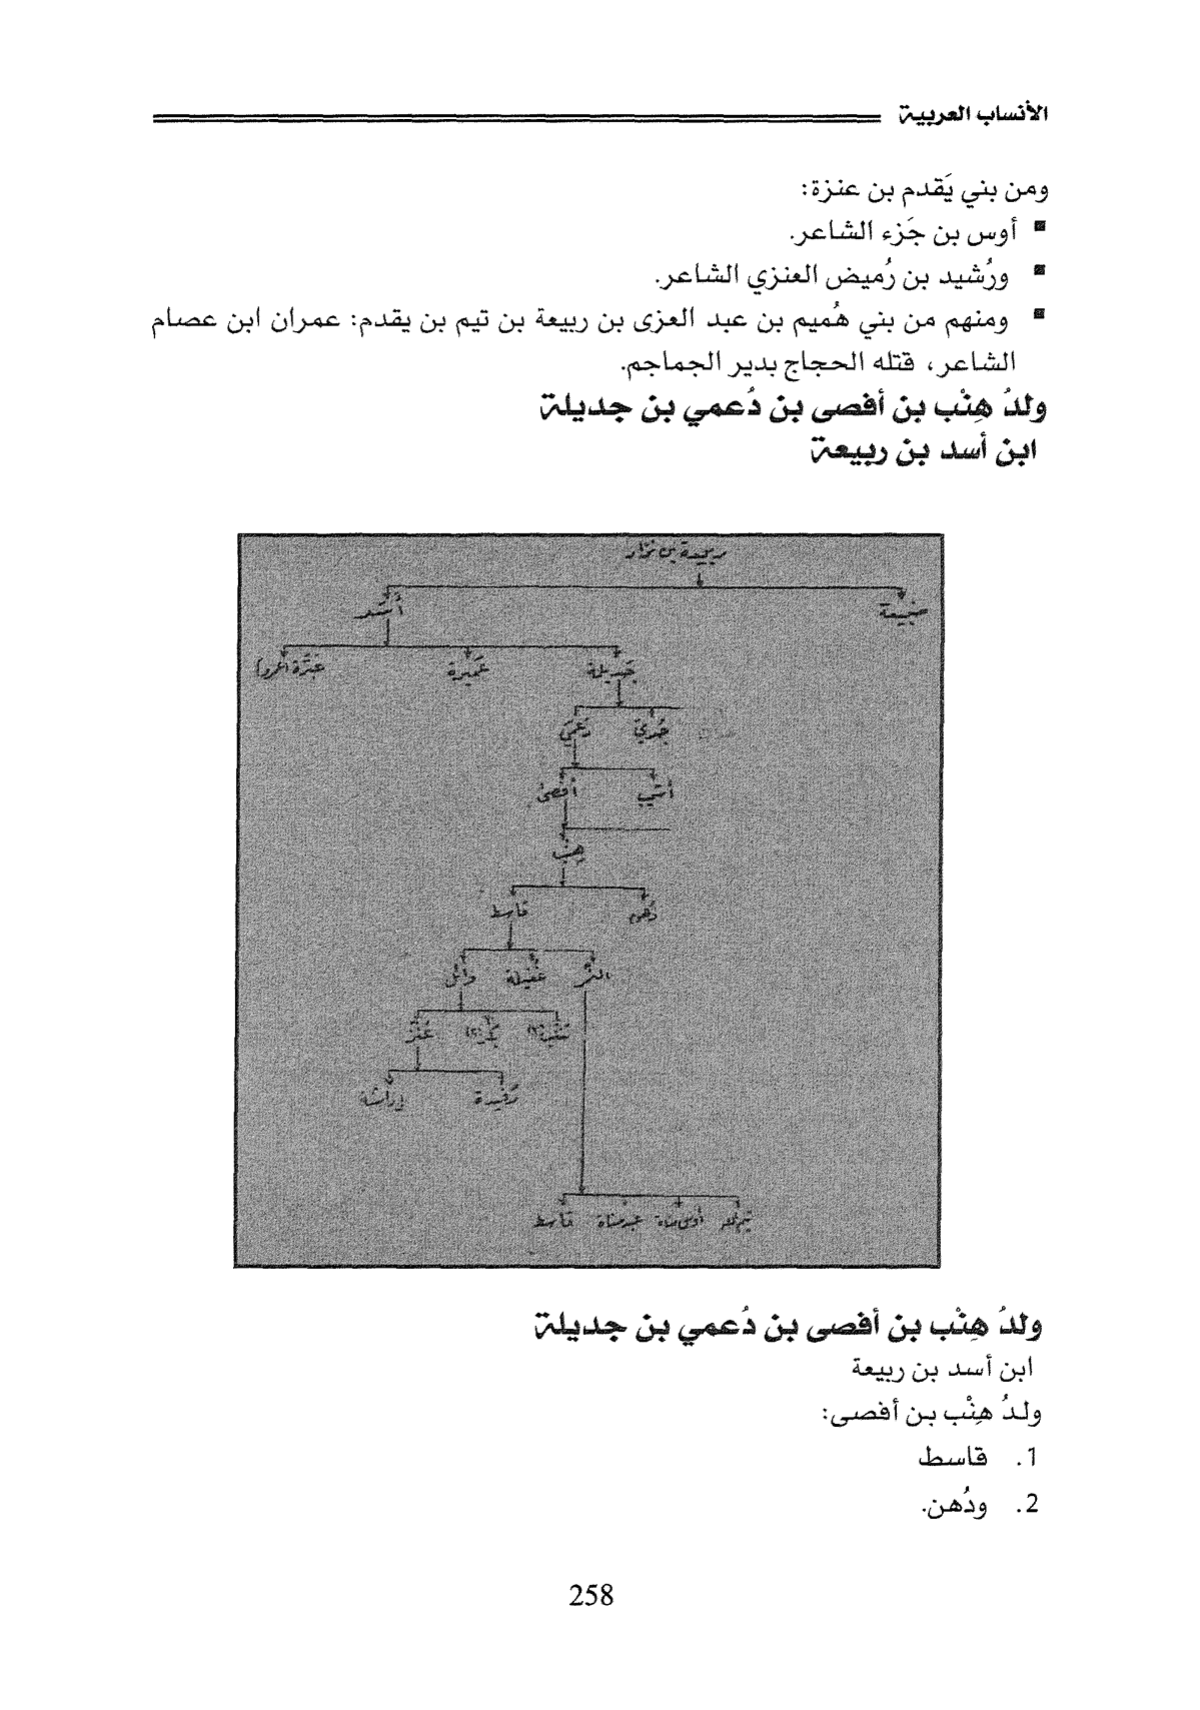 الأنساب العربية
ومن بني يَقدم بن عنزة:
▪ أوس بن جَزء الشاعر.
▪ ورُشيد بن رُميض العنزي الشاعر.
▪ ومنهم من بني هُميم بن عبد العزى بن ربيعة بن تيم بن يقدم: عمران ابن عصام
الشاعر، قتله الحجاج بدير الجماجم.
ولدُ هِنْب بن أفصى بن دُعمي بن جديلة
ابن أسد بن ربيعة
ربيعة بن نزار
ضبيعة أسد
جديلة عميرة
جُديّ دُعميّ
أفصى
هِنْب
دُهن قاسط
النمر غفيلة وائل
تغلب بكر عَنْز
رفيدة إراشة
تيم الله أوس مناة عبد مناة قاسط
ولدُ هِنْب بن أفصى بن دُعمي بن جديلة
ابن أسد بن ربيعة
ولدُ هِنْب بن أفصى:
1. قاسط
2. ودُهن.
258